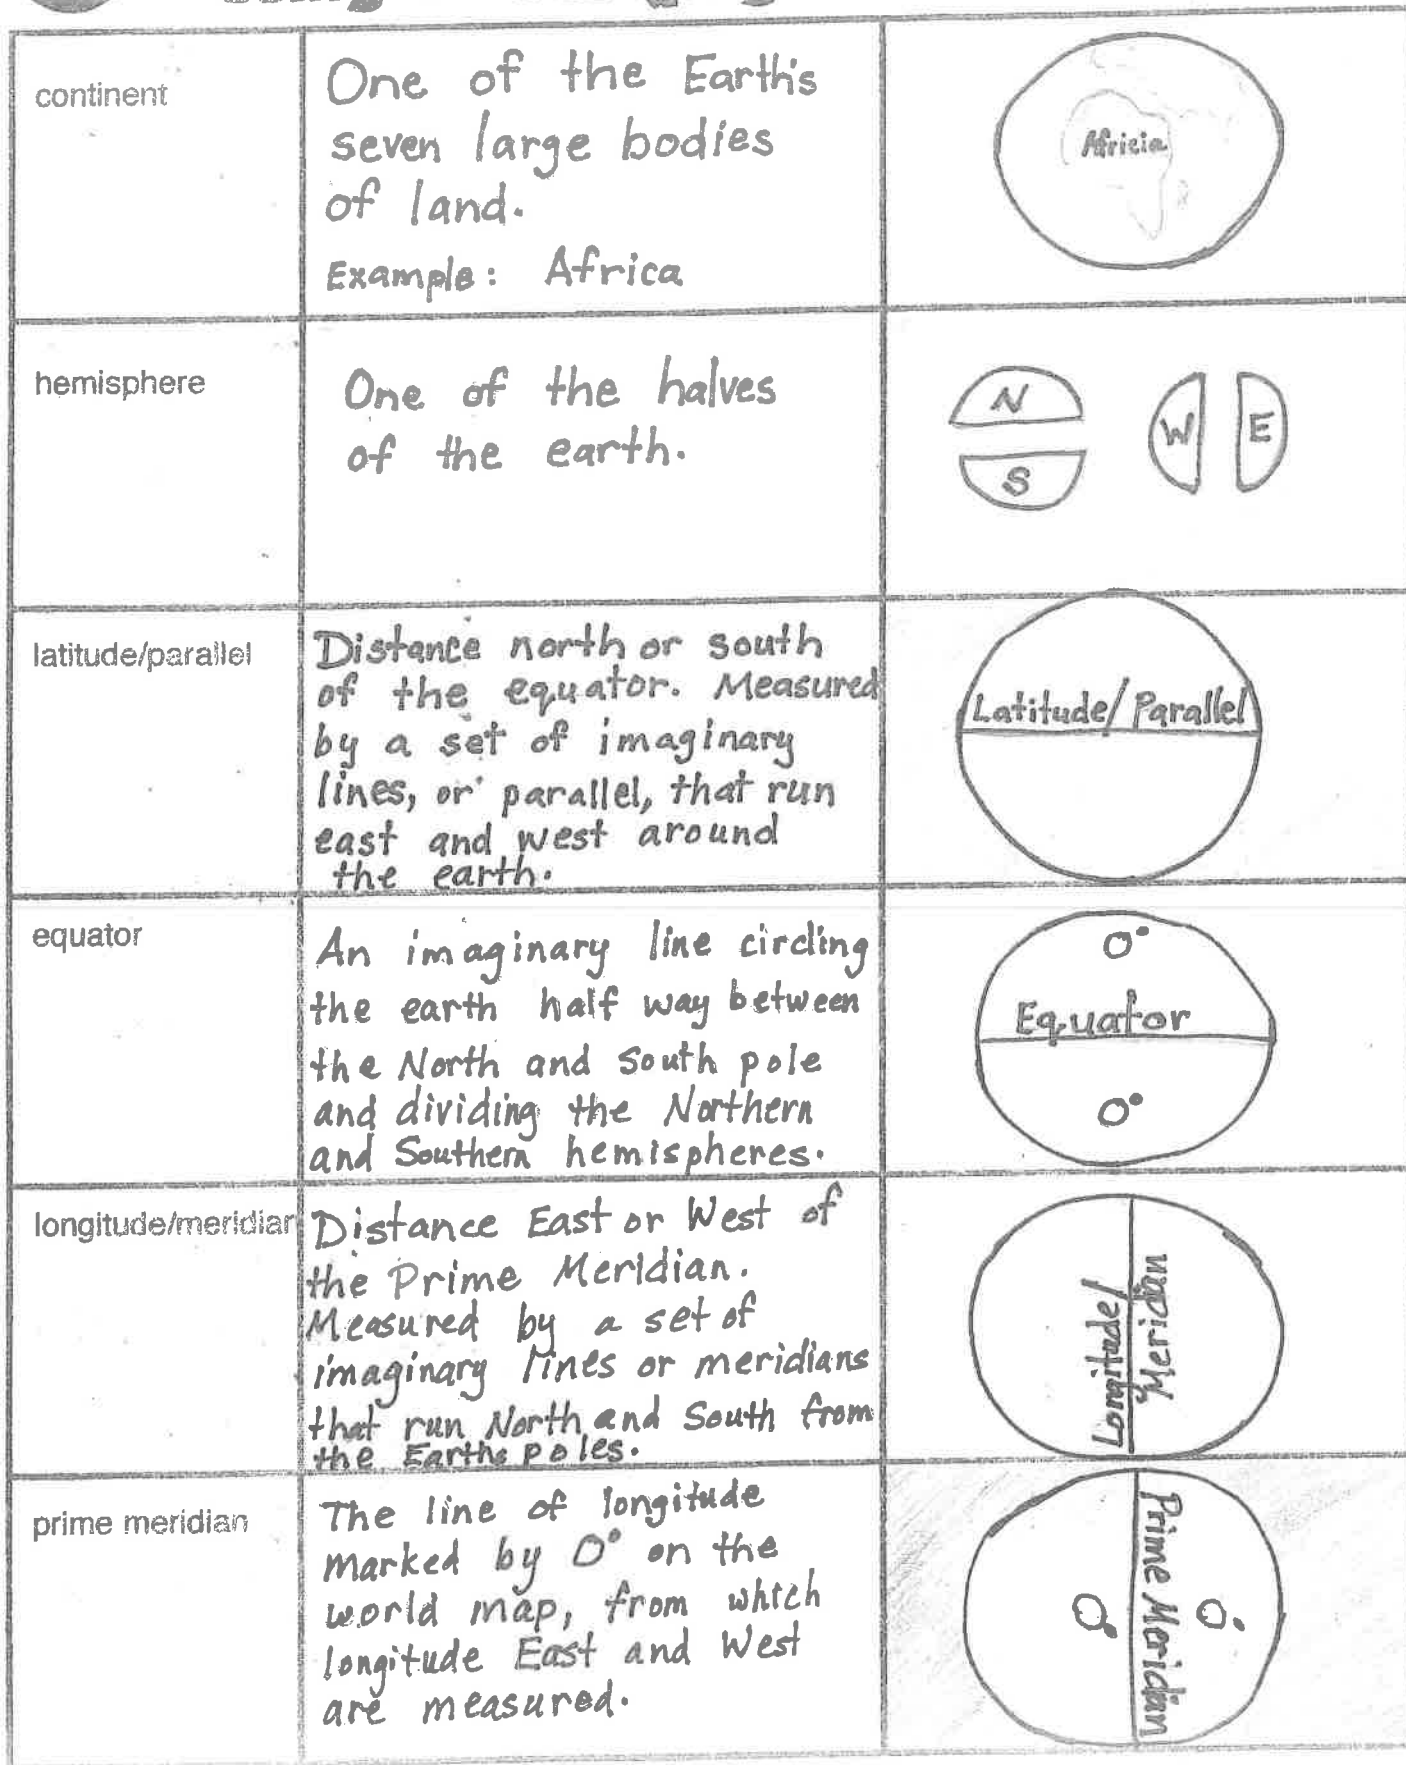 continent
One of the Earth's
seven large bodies
of land.
Example: Africa
Africia
hemisphere
One of the halves
of the earth.
N
S
W
E
latitude/parallel
Distance north or south
of the equator. Measured
by a set of imaginary
lines, or parallel, that run
east and west around
the earth.
Latitude/Parallel
equator
An imaginary line circling
the earth half way between
the North and South pole
and dividing the Northern
and Southern hemispheres.
0°
Equator
0°
longitude/meridian
Distance East or West of
the Prime Meridian.
Measured by a set of
imaginary lines or meridians
that run North and South from
the Earths poles.
Longitude/
Meridian
prime meridian
The line of longitude
marked by 0° on the
world map, from which
longitude East and West
are measured.
0°
Prime Meridian
0°